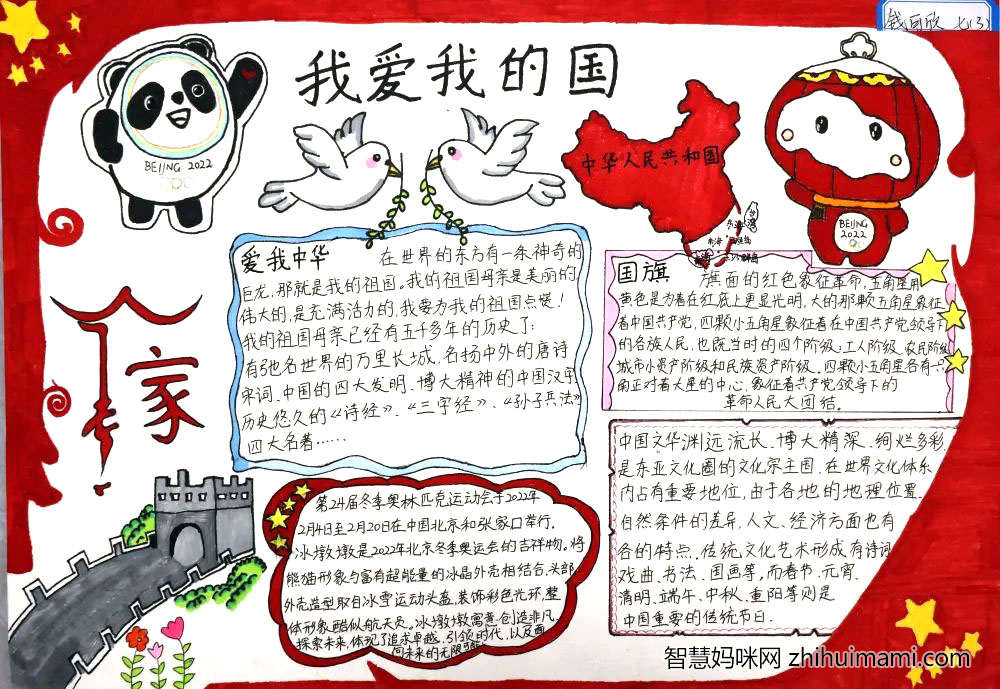 七(3)
我爱我的国
BEIJING 2022
中华人民共和国
BEIJING
2022
爱我中华
在世界的东方有一条神奇的
巨龙,那就是我的祖国。我的祖国母亲是美丽的
伟大的,是充满活力的,我要为我的祖国点赞!
我的祖国母亲已经有五千多年的历史了:
有驰名世界的万里长城,名扬中外的唐诗
宋词,中国的四大发明,博大精神的中国汉字
历史悠久的《诗经》、《三字经》、《孙子兵法》
四大名著……
国旗
旗面的红色象征革命,五角星用
黄色是为着在红底上更显光明,大的那颗五角星象征
着中国共产党,四颗小五角星象征着在中国共产党领导下
的各族人民,也既当时的四个阶级:工人阶级、农民阶级
城市小资产阶级和民族资产阶级。四颗小五角星各有一尖
角正对着大星的中心,象征着共产党领导下的
革命人民大团结。
家
第24届冬季奥林匹克运动会于2022年
2月4日至2月20日在中国北京和张家口举行。
冰墩墩是2022年北京冬季奥运会的吉祥物。将
熊猫形象与富有超能量的冰晶外壳相结合,头部
外壳造型取自冰雪运动头盔,装饰彩色光环,整
体形象酷似航天员。冰墩墩寓意创造非凡、
探索未来,体现了追求卓越,引领时代,以及面
向未来的无限可能。
中国文华渊远流长、博大精深、绚烂多彩,
是东亚文化圈的文化宗主国,在世界文化体系
内占有重要地位,由于各地的地理位置、
自然条件的差异,人文、经济方面也有
各的特点,传统文化艺术形成有诗词
戏曲、书法、国画等,而春节、元宵、
清明、端午、中秋、重阳等则是
中国重要的传统节日。
智慧妈咪网 zhihuimami.com